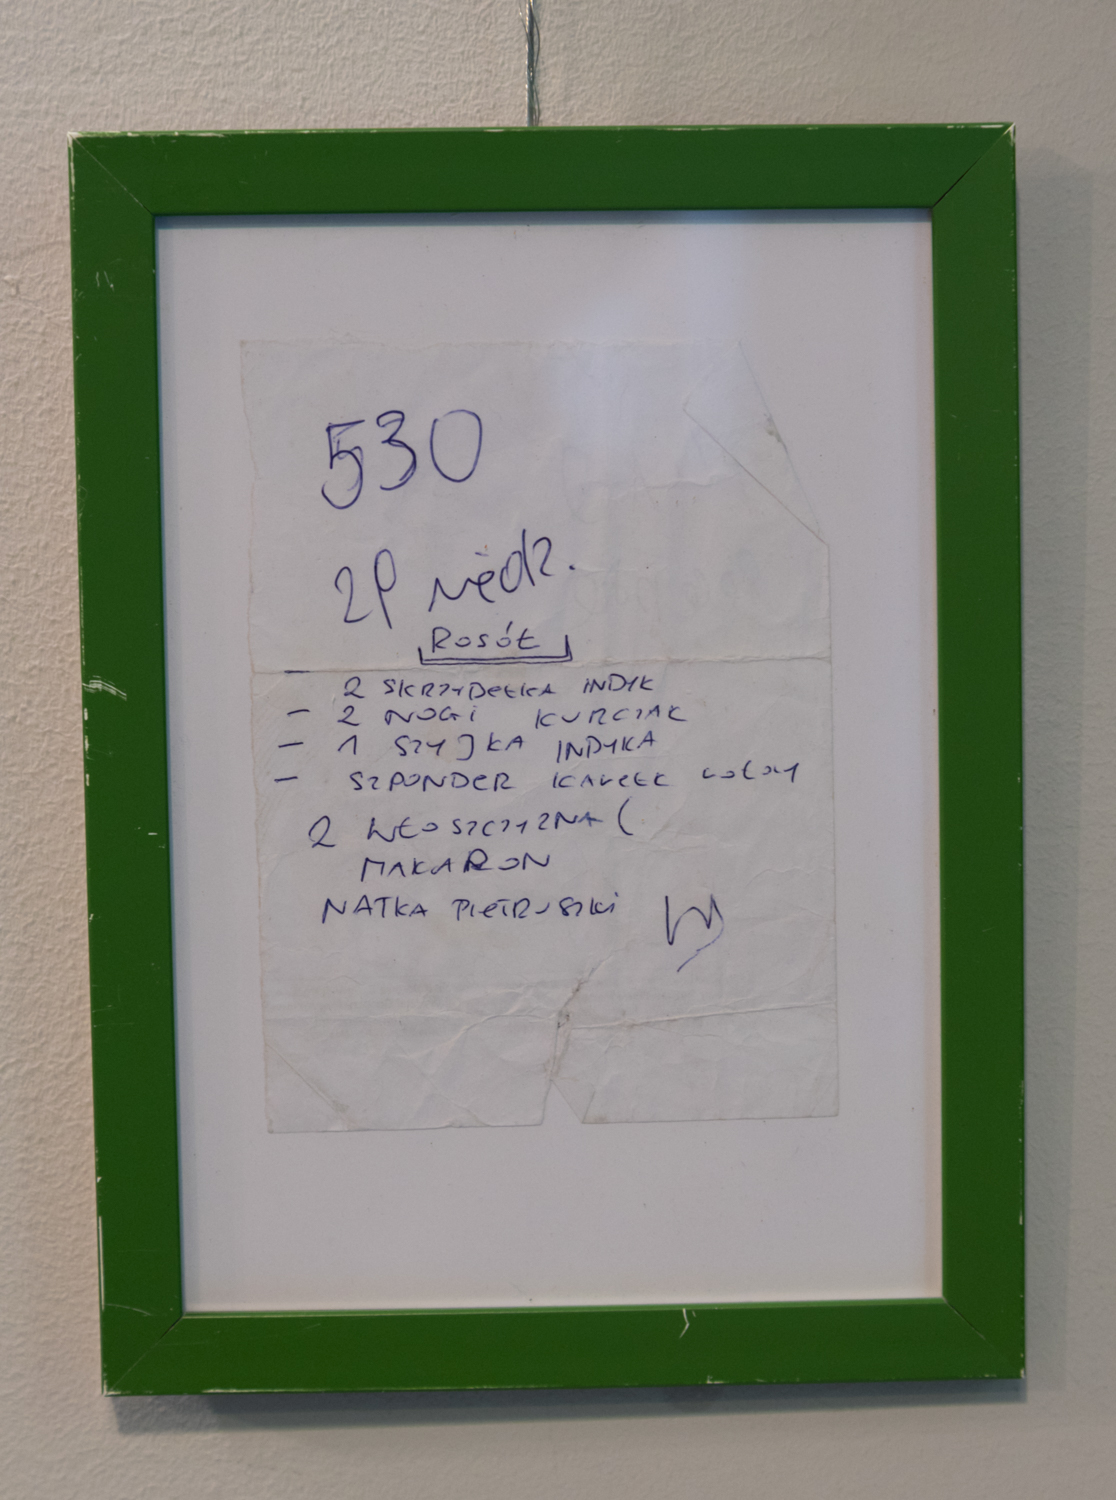 530
2P niedz.
ROSÓŁ
- 2 SKRZYDEŁKA INDYK
- 2 NOGI KURCZAK
- 1 SZYJKA INDYKA
- SZPONDER KAWŁEK WOŁOWY
2 WŁOSZCZYZNA (
MAKARON
NATKA PIETRUSZKI